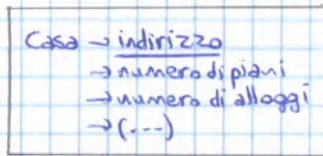 Casa → indirizzo
→ numero di piani
→ numero di alloggi
→ (---)